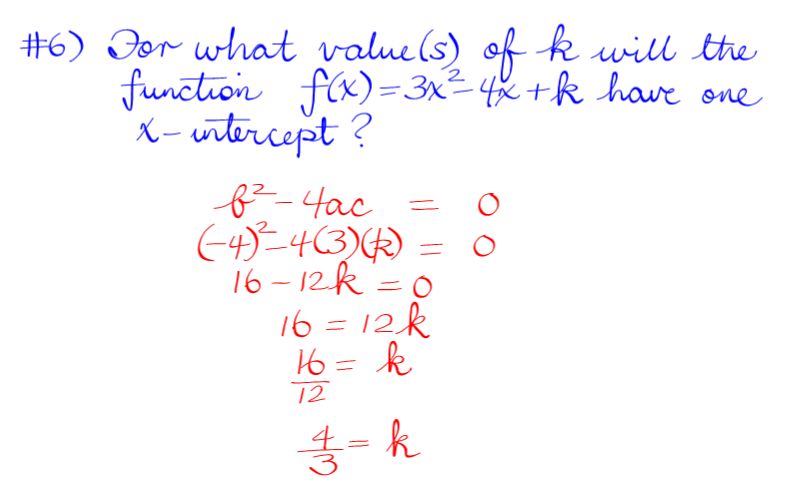 #6) For what value(s) of k will the
function f(x)=3x²-4x+k have one
x-intercept?
b²-4ac = 0
(-4)²-4(3)(k) = 0
16-12k=0
16 = 12k
16/12 = k
4/3 = k